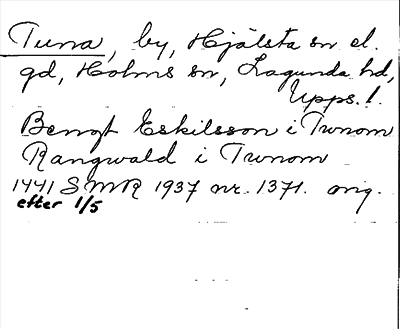 Tuna, by, Hjälsta sn el.
gd, Holms sn, Lagunda hd,
Upps.l.
Bengt Eskilsson i Twnom
Rangwald i Twnom
1441 SMR 1937 nr. 1371. orig.
efter 1/5